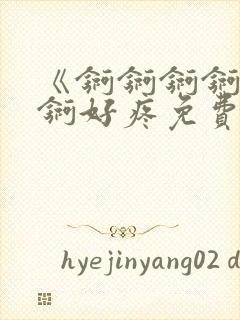 《锕锕锕锕
锕好疼免費
hyejinyang02 d